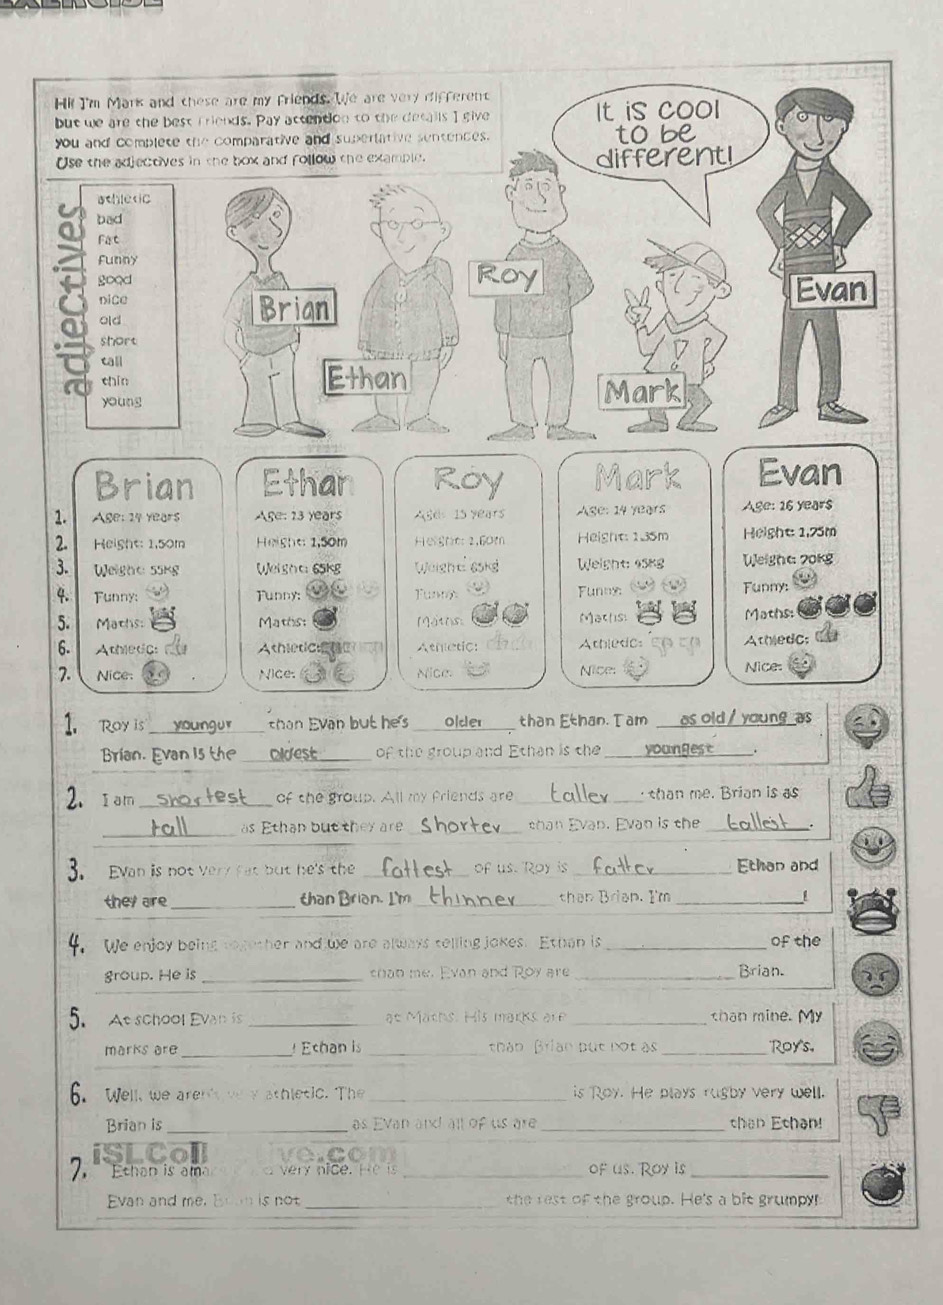 EXERCISE
Hi! I'm Mark and these are my friends. We are very different
but we are the best friends. Pay attention to the details I give
you and complete the comparative and superlative sentences.
Use the adjectives in the box and follow the example.
It is cool
to be
different!
adjectives
athletic
bad
fat
funny
good
nice
old
short
tall
thin
young
Brian
Ethan
Roy
Mark
Evan
Brian Ethan Roy Mark Evan
1. Age: 14 years Age: 13 years Age: 15 years Age: 14 years Age: 16 years
2. Height: 1,50m Height: 1,50m Height: 1,60m Height: 1.35m Height: 1,75m
3. Weight: 55kg Weight: 65kg Weight: 65kg Weight: 45kg Weight: 70kg
4. Funny: Funny: Funny: Funny: Funny:
5. Maths: Maths: Maths: Maths: Maths:
6. Athletic: Athletic: Athletic: Athletic: Athletic:
7. Nice: Nice: Nice: Nice: Nice:
1. Roy is youngur than Evan but he's older than Ethan. I am as old / young as
Brian. Evan is the oldest of the group and Ethan is the youngest.
2. I am shortest of the group. All my friends are taller than me. Brian is as
tall as Ethan but they are shorter than Evan. Evan is the tallest.
3. Evan is not very fat but he's the fattest of us. Roy is fatter Ethan and
they are than Brian. I'm thinner than Brian. I'm !
4. We enjoy being together and we are always telling jokes. Ethan is of the
group. He is than me. Evan and Roy are Brian.
5. At school Evan is at Maths. His marks are than mine. My
marks are ! Ethan is than Brian but not as Roy's.
6. Well, we aren't very athletic. The is Roy. He plays rugby very well.
Brian is as Evan and all of us are than Ethan!
iSLCollective.com
7. Ethan is very nice. He is of us. Roy is
Evan and me. Brian is not the rest of the group. He's a bit grumpy!